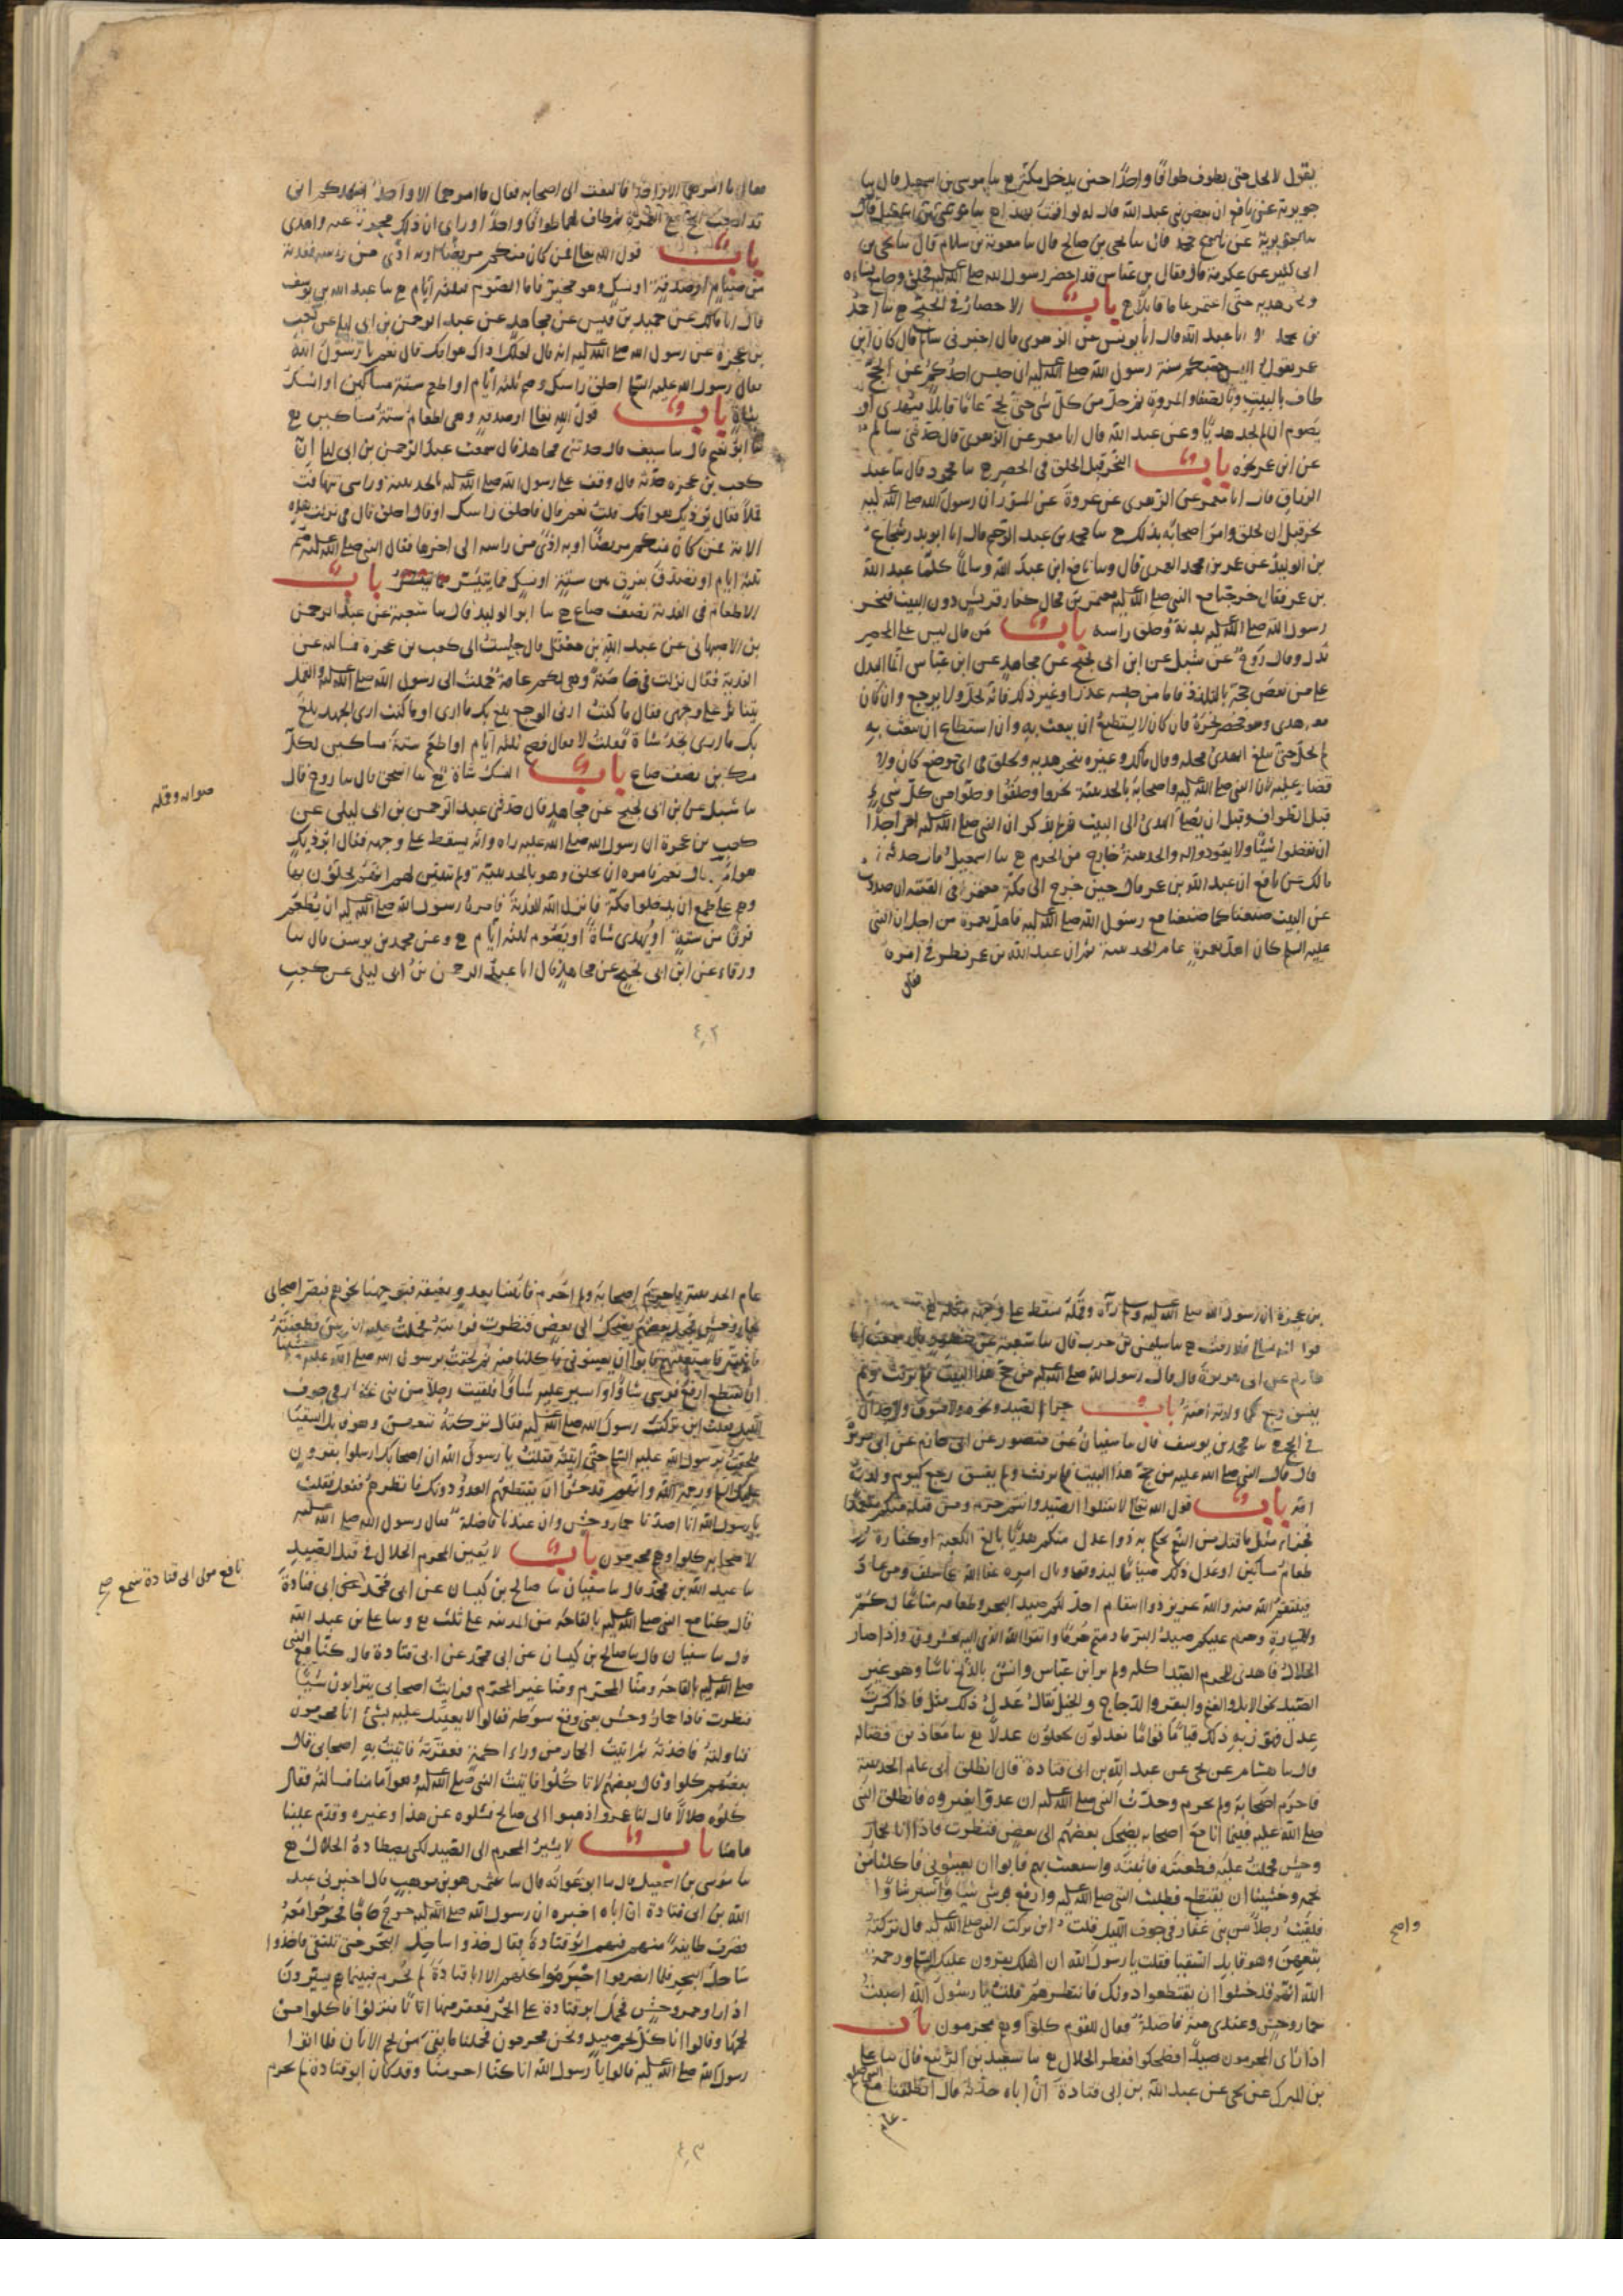 يقول لا يحل حتى يطوف طوافا واحدا حين يدخل مكة ح سا موسى بن اسمعيل قال سا
جويرية عن نافع ان بعض بني عبد الله قال له لو اقمت بهذا
ح محمد قال سا يحيى بن صالح قال سا معوية بن سلام قال سا يحيى بن
ابى كثير عن عكرمة قال فقال ابن عباس قد احصر رسول الله صلى الله عليه فحلق وجامع نساءه
ونحر هديه حتى اعتمر عاما قابلا ح باب الاحصار في الحج ح سا احمد
بن محمد انا عبد الله قال انا يونس عن الزهري قال اخبرني سالم قال كان ابن
عمر يقول اليس حسبكم سنة رسول الله صلى الله عليه ان حبس احدكم عن الحج
طاف بالبيت وبالصفا والمروة ثم حل من كل شى حتى يحج عاما قابلا فيهدي او
يصوم ان لم يجد هديا وعن عبد الله قال انا معمر عن الزهري قال حدثني سالم
عن ابن عمر نحوه باب النحر قبل الحلق في الحصر ح سا محمود قال سا عبد
الرزاق قال انا معمر عن الزهري عن عروة عن المسور ان رسول الله صلى الله عليه
نحر قبل ان يحلق وامر اصحابه بذلك ح سا محمد بن عبد الرحيم قال انا ابو بدر شجاع
بن الوليد عن عمر بن محمد العمري قال وسا نافع ان عبد الله وسالما كلما عبد الله
بن عمر فقال خرجنا مع النبي صلى الله عليه معتمرين فحال كفار قريش دون البيت فنحر
رسول الله صلى الله عليه بدنه وحلق راسه باب من قال ليس على المحصر
بدل وقال روح عن شبل عن ابن ابى نجيح عن مجاهد عن ابن عباس انما البدل
على من نقض حجه بالتلذذ فاما من حبسه عذر او غير ذلك فانه يحل ولا يرجع وان كان
معه هدي وهو محصر نحره فان كان لا يستطيع ان يبعث به وان استطاع ان يبعث به
لم يحل حتى يبلغ الهدي محله وقال مالك وغيره ينحر هديه ويحلق في اى موضع كان ولا
قضاء عليه لان النبي صلى الله عليه واصحابه بالحديبية نحروا وحلقوا وحلوا من كل شى
قبل الطواف وقبل ان يصل الهدي الى البيت ثم لم يذكر ان النبي صلى الله عليه امر احدا
ان يقضوا شيئا ولا يعودوا له والحديبية خارج من الحرم ح سا اسمعيل قال حدثني
مالك عن نافع ان عبد الله بن عمر قال حين خرج الى مكة معتمرا في الفتنة ان صددت
عن البيت صنعنا كما صنعنا مع رسول الله صلى الله عليه فاهل بعمرة من اجل ان النبي
عليه السلم كان اهل بعمرة عام الحديبية ثم ان عبد الله بن عمر نظر في امره
فقال
فقال ما امرهما الا واحد فالتفت الى اصحابه فقال ما امرهما الا واحد اشهدكم انى
قد اوجبت الحج مع العمرة ثم طاف لهما طوافا واحدا وراى ان ذلك مجزئ عنه واهدى
باب قول الله تعالى فمن كان منكم مريضا او به اذى من راسه ففدية
من صيام او صدقة او نسك وهو مخير فاما الصوم فثلثة ايام ح سا عبد الله بن يوسف
قال انا مالك عن حميد بن قيس عن مجاهد عن عبد الرحمن بن ابى ليلى عن كعب
بن عجرة عن رسول الله صلى الله عليه انه قال لعلك اذاك هوامك قال نعم يا رسول الله
فقال رسول الله عليه السلم احلق راسك وصم ثلثة ايام او اطعم ستة مساكين او انسك
بشاة باب قول الله تعالى او صدقة وهي اطعام ستة مساكين ح
سا ابو نعيم قال سا سيف قال حدثني مجاهد قال سمعت عبد الرحمن بن ابى ليلى ان
كعب بن عجرة حدثه قال وقف على رسول الله صلى الله عليه بالحديبية وراسي يتهافت
قملا فقال يوذيك هوامك قلت نعم قال فاحلق راسك او قال احلق قال في نزلت هذه
الاية فمن كان منكم مريضا او به اذى من راسه الى اخرها فقال النبي صلى الله عليه صم
ثلثة ايام او تصدق بفرق بين ستة او نسك مما تيسر باب
الاطعام في الفدية نصف صاع ح سا ابو الوليد قال سا شعبة عن عبد الرحمن
بن الاصبهاني عن عبد الله بن معقل قال جلست الى كعب بن عجرة فسالته عن
الفدية فقال نزلت في خاصة وهي لكم عامة حملت الى رسول الله صلى الله عليه والقمل
يتناثر على وجهي فقال ما كنت ارى الوجع بلغ بك ما ارى او ما كنت ارى الجهد بلغ
بك ما ارى تجد شاة فقلت لا فقال فصم ثلثة ايام او اطعم ستة مساكين لكل
مسكين نصف صاع باب النسك شاة ح سا اسحق قال سا روح قال
سا شبل عن ابن ابى نجيح عن مجاهد قال حدثني عبد الرحمن بن ابى ليلى عن
كعب بن عجرة ان رسول الله صلى الله عليه راه وانه يسقط على وجهه فقال ايوذيك
هوامك قال نعم فامره ان يحلق وهو بالحديبية ولم يتبين لهم انهم يحلون بها
وهم على طمع ان يدخلوا مكة فانزل الله الفدية فامره رسول الله صلى الله عليه ان يطعم
فرقا بين ستة او يهدي شاة او يصوم ثلثة ايام ح وعن محمد بن يوسف قال سا
ورقاء عن ابن ابى نجيح عن مجاهد قال انا عبد الرحمن بن ابى ليلى عن كعب
صوابه وقمله
٤٠٢
بن عجرة ان رسول الله صلى الله عليه وسلم رآه وقمله يسقط على وجهه مثله ح
قول الله تعالى فلا رفث ح سا سليمن بن حرب قال سا شعبة عن منصور قال سمعت ابا
حازم عن ابى هريرة قال قال رسول الله صلى الله عليه من حج هذا البيت فلم يرفث ولم
يفسق رجع كما ولدته امه باب جزاء الصيد ونحوه ولا فسوق ولا جدال
في الحج ح سا محمد بن يوسف قال سا سفيان عن منصور عن ابى حازم عن ابى هريرة
قال قال النبي صلى الله عليه من حج هذا البيت فلم يرفث ولم يفسق رجع كيوم ولدته
امه باب قول الله تعالى لا تقتلوا الصيد وانتم حرم ومن قتله منكم متعمدا
فجزاء مثل ما قتل من النعم يحكم به ذوا عدل منكم هديا بالغ الكعبة او كفارة
طعام مساكين او عدل ذلك صياما ليذوق وبال امره عفا الله عما سلف ومن عاد
فينتقم الله منه والله عزيز ذو انتقام احل لكم صيد البحر وطعامه متاعا لكم
وللسيارة وحرم عليكم صيد البر ما دمتم حرما واتقوا الله الذي اليه تحشرون واذا صاد
الحلال فاهدى للمحرم الصيد اكله ولم ير ابن عباس وانس بالذبح باسا وهو غير
الصيد نحو الابل والغنم والبقر والدجاج والخيل يقال عدل ذلك مثل فاذا كسرت
عدل فهو زنة ذلك قياما قواما يعدلون يجعلون عدلا ح سا معاذ بن فضالة
قال سا هشام عن يحيى عن عبد الله بن ابى قتادة قال انطلق ابى عام الحديبية
فاحرم اصحابه ولم يحرم وحدث النبي صلى الله عليه ان عدوا يغزوه فانطلق النبي
صلى الله عليه فبينما انا مع اصحابه يضحك بعضهم الى بعض فنظرت فاذا انا بحمار
وحش فحملت عليه فطعنته فاثبته واستعنت بهم فابوا ان يعينوني فاكلنا من
لحمه وخشينا ان نقتطع فطلبت النبي صلى الله عليه وارفع فرسي شاوا واسير شاوا
فلقيت رجلا من بني غفار في جوف الليل قلت اين تركت النبي صلى الله عليه قال تركته
بتعهن وهو قايل السقيا فقلت يا رسول الله ان اهلك يقرون عليك السلم ورحمة
الله انهم قد خشوا ان يقتطعوا دونك فانتظرهم قلت يا رسول الله اصبت
حمار وحش وعندي منه فاضلة فقال للقوم كلوا وهم محرمون باب
اذا راى المحرمون صيدا فضحكوا ففطن الحلال ح سا سعيد بن الربيع قال سا علي
بن المبرك عن يحيى عن عبد الله بن ابى قتادة ان اباه حدثه قال انطلقنا مع النبي صلى
عام
عام الحديبية فاحرم اصحابه ولم احرم فانبئنا بعدو بغيقة فتوجهنا نحوهم فبصر اصحابي
بحمار وحش فجعل بعضهم يضحك الى بعض فنظرت فرايته فحملت عليه الفرس فطعنته
فاثبته فاستعنتهم فابوا ان يعينوني فاكلنا منه ثم لحقت برسول الله صلى الله عليه وخشينا
ان نقتطع ارفع فرسي شاوا واسير عليه شاوا فلقيت رجلا من بني غفار في جوف
الليل فقلت اين تركت رسول الله صلى الله عليه فقال تركته بتعهن وهو قايل السقيا
فلحقت برسول الله عليه السلم حتى اتيته فقلت يا رسول الله ان اصحابك ارسلوا يقرون
عليك السلم ورحمة الله وانهم قد خشوا ان يقتطعهم العدو دونك فانظرهم ففعل فقلت
يا رسول الله انا اصدنا حمار وحش وان عندنا فاضلة فقال رسول الله صلى الله عليه
لاصحابه كلوا وهم محرمون باب لا يعين المحرم الحلال في قتل الصيد
سا عبد الله بن محمد قال سا سفيان سا صالح بن كيسان عن ابى محمد عن ابى قتادة
قال كنا مع النبي صلى الله عليه بالقاحة من المدينة على ثلث ح وسا علي بن عبد الله
قال سا سفيان قال سا صالح بن كيسان عن ابى محمد عن ابى قتادة قال كنا مع النبي
صلى الله عليه بالقاحة ومنا المحرم ومنا غير المحرم فرايت اصحابي يتراءون شيئا
فنظرت فاذا حمار وحش يعني وقع سوطه فقالوا لا نعينك عليه بشئ انا محرمون
فتناولته فاخذته ثم اتيت الحمار من وراء اكمة فعقرته فاتيت به اصحابي فقال
بعضهم كلوا وقال بعضهم لا تاكلوا فاتيت النبي صلى الله عليه وهو امامنا فسالته فقال
كلوه حلالا قال لنا عمرو اذهبوا الى صالح فسلوه عن هذا وغيره وقدم علينا
هاهنا باب لا يشير المحرم الى الصيد لكى يصطاده الحلال ح
سا موسى بن اسمعيل قال سا ابو عوانه قال سا عثمن هو بن موهب قال اخبرني عبد
الله بن ابى قتادة ان اباه اخبره ان رسول الله صلى الله عليه خرج حاجا فخرجوا معه
فصرف طايفة منهم فيهم ابو قتادة فقال خذوا ساحل البحر حتى نلتقي فاخذوا
ساحل البحر فلما انصرفوا احرموا كلهم الا ابا قتادة لم يحرم فبينما هم يسيرون
اذ راوا حمر وحش فحمل ابو قتادة على الحمر فعقر منها اتانا فنزلوا فاكلوا من
لحمها وقالوا اناكل لحم صيد ونحن محرمون فحملنا ما بقي من لحم الاتان فلما اتوا
رسول الله صلى الله عليه قالوا يا رسول الله انا كنا احرمنا وقد كان ابو قتادة لم يحرم
نافع مولى ابى قتادة سمع صح
٤٠٣